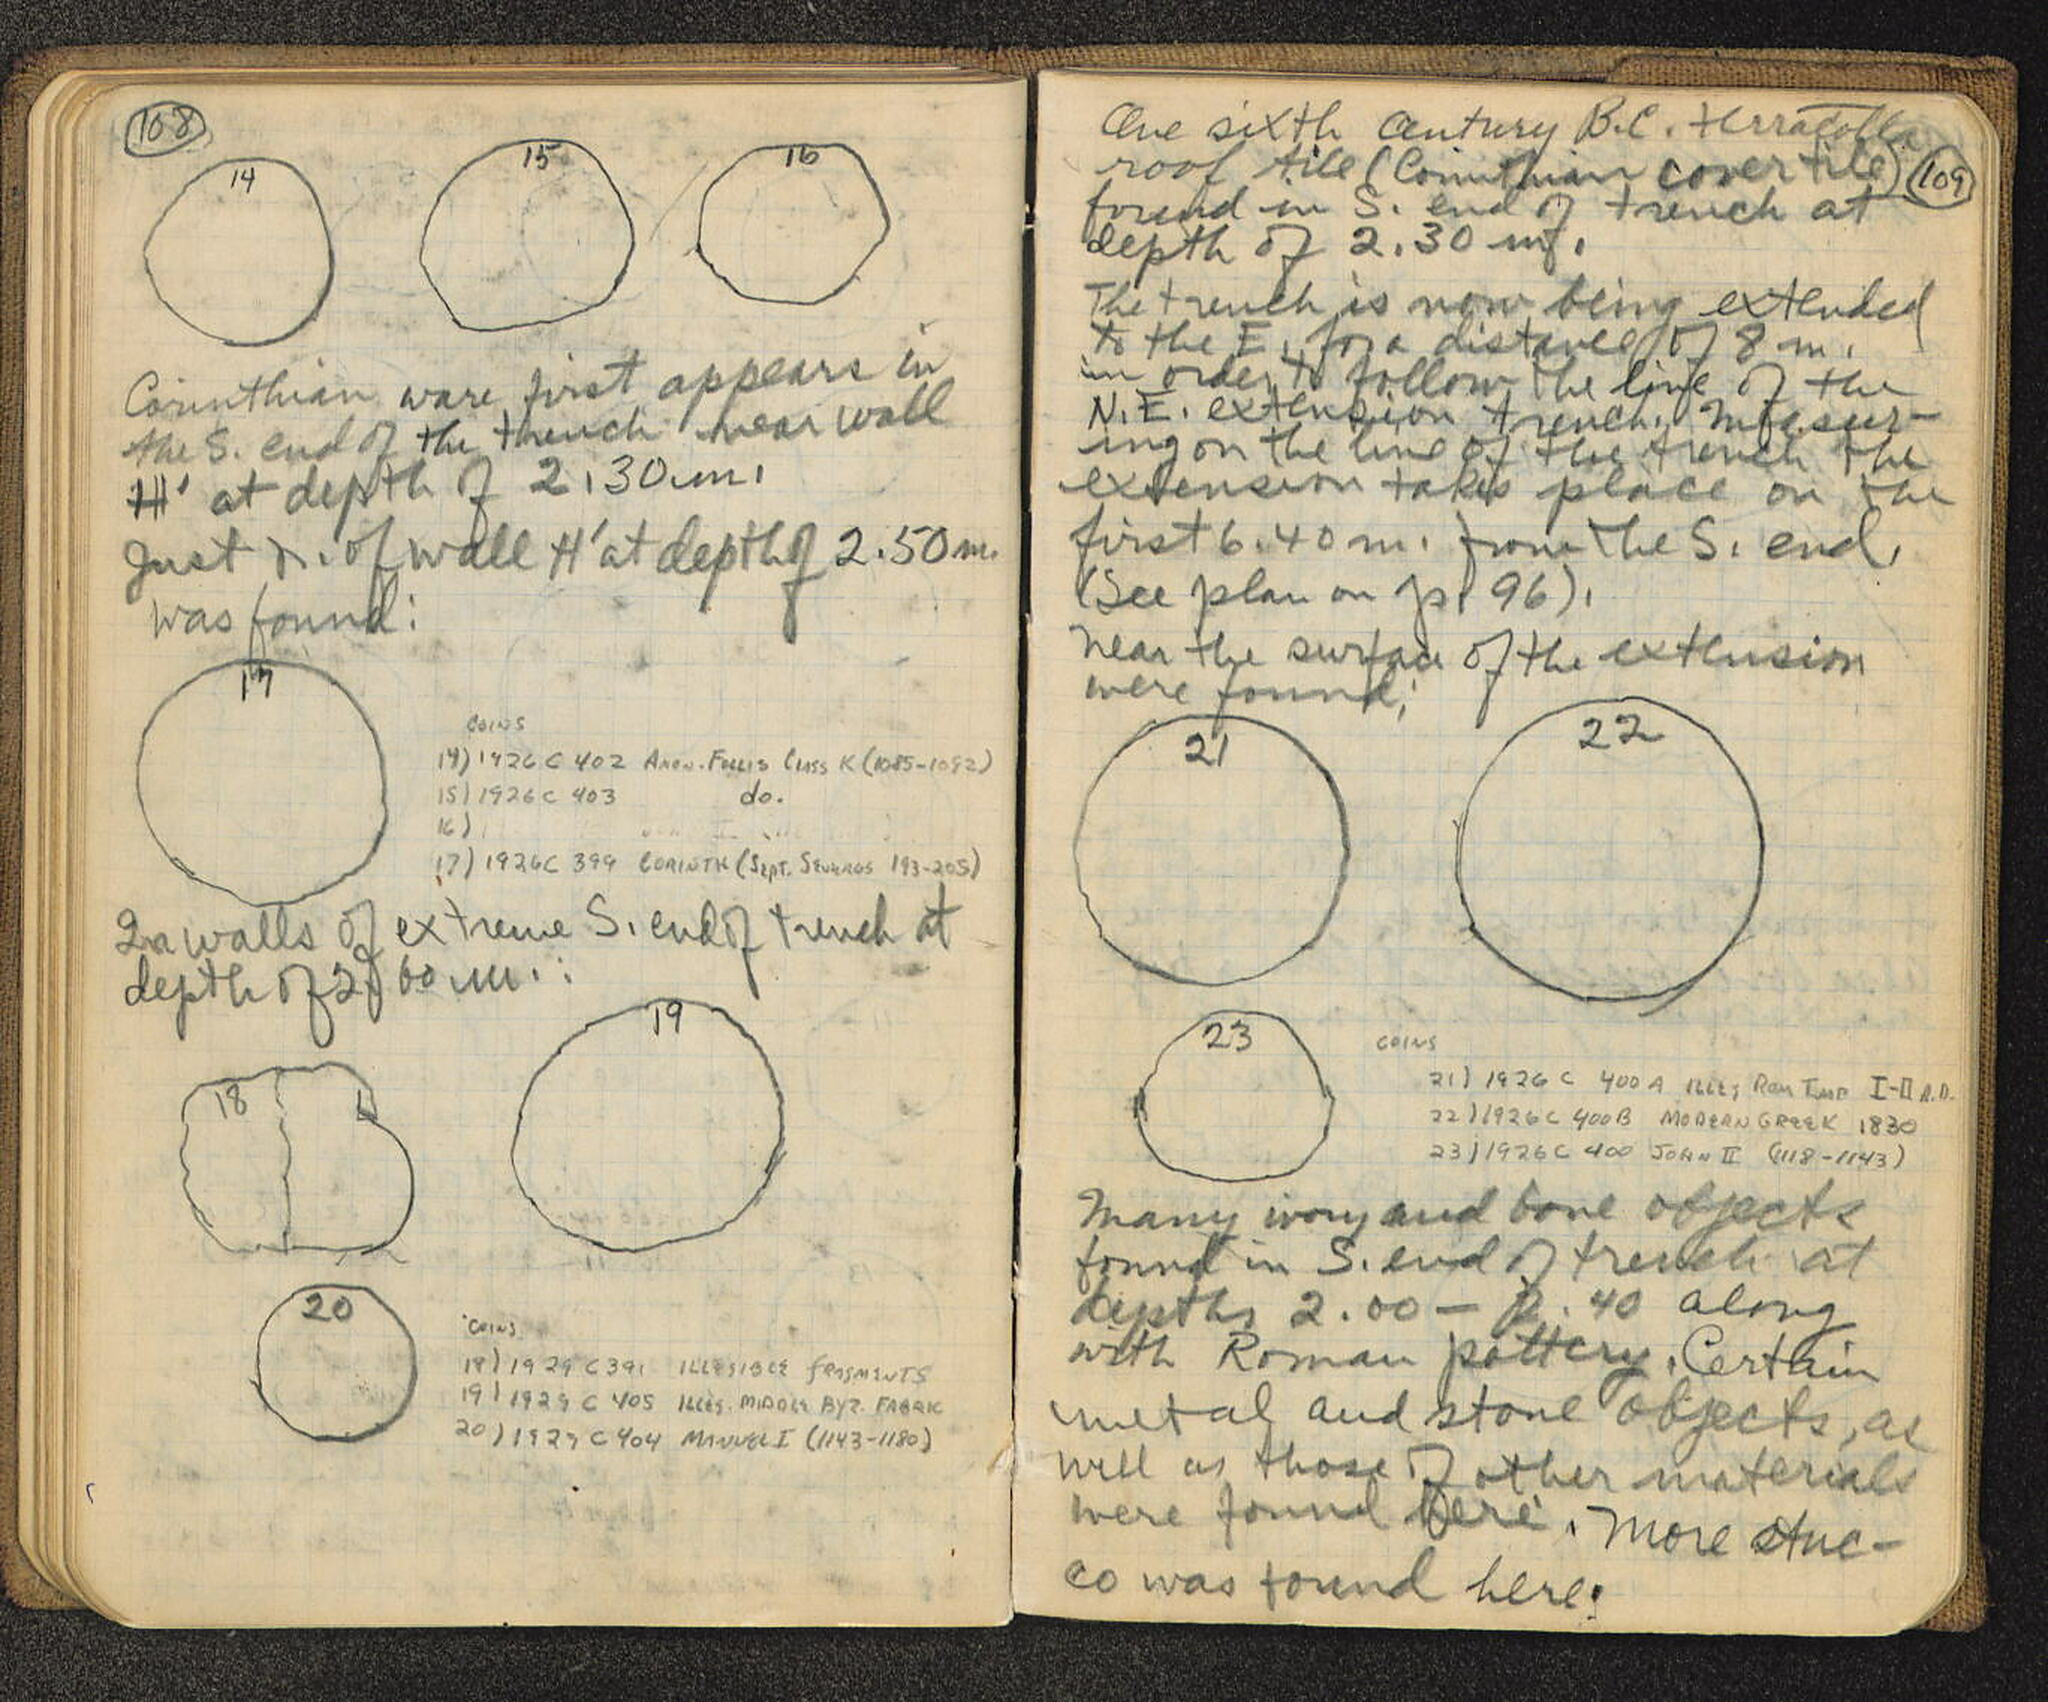 108
14
15
16
Corinthian ware first appears in
the S. end of the trench near wall
H' at depth of 2.30 m.
Just N. of wall H' at depth of 2.50 m.
was found:
17
COINS
14) 1926 C 402 ANON. FOLLIS CLASS K (1085-1092)
15) 1926 C 403 do.
16)
17) 1926 C 399 CORINTH (SEPT. SEVERUS 193-205)
In walls of extreme S. end of trench at
depth of 2.60 m.:
18
19
20
COINS
18) 1929 C 391 ILLEGIBLE FRAGMENTS
19) 1929 C 405 ILLEG. MIDDLE BYZ. FABRIC
20) 1929 C 404 MANUEL I (1143-1180)
One sixth century B.C. terracotta
roof tile (Corinthian cover tile)
109
found in S. end of trench at
depth of 2.30 m.
The trench is now being extended
to the E. for a distance of 8 m.
in order to follow the line of the
N.E. extension trench. Measur-
ing on the line of the trench the
extension takes place on the
first 6.40 m. from the S. end.
(See plan on p. 96).
Near the surface of the extension
were found:
21
22
23
COINS
21) 1926 C 400A ILLEG ROM IMP I-II A.D.
22) 1926 C 400B MODERN GREEK 1830
23) 1926 C 400 JOHN II (1118-1143)
Many ivory and bone objects
found in S. end of trench at
depths 2.00 — 2.40 along
with Roman pottery. Certain
metal and stone objects, as
well as those of other materials
were found here. More stuc-
co was found here.